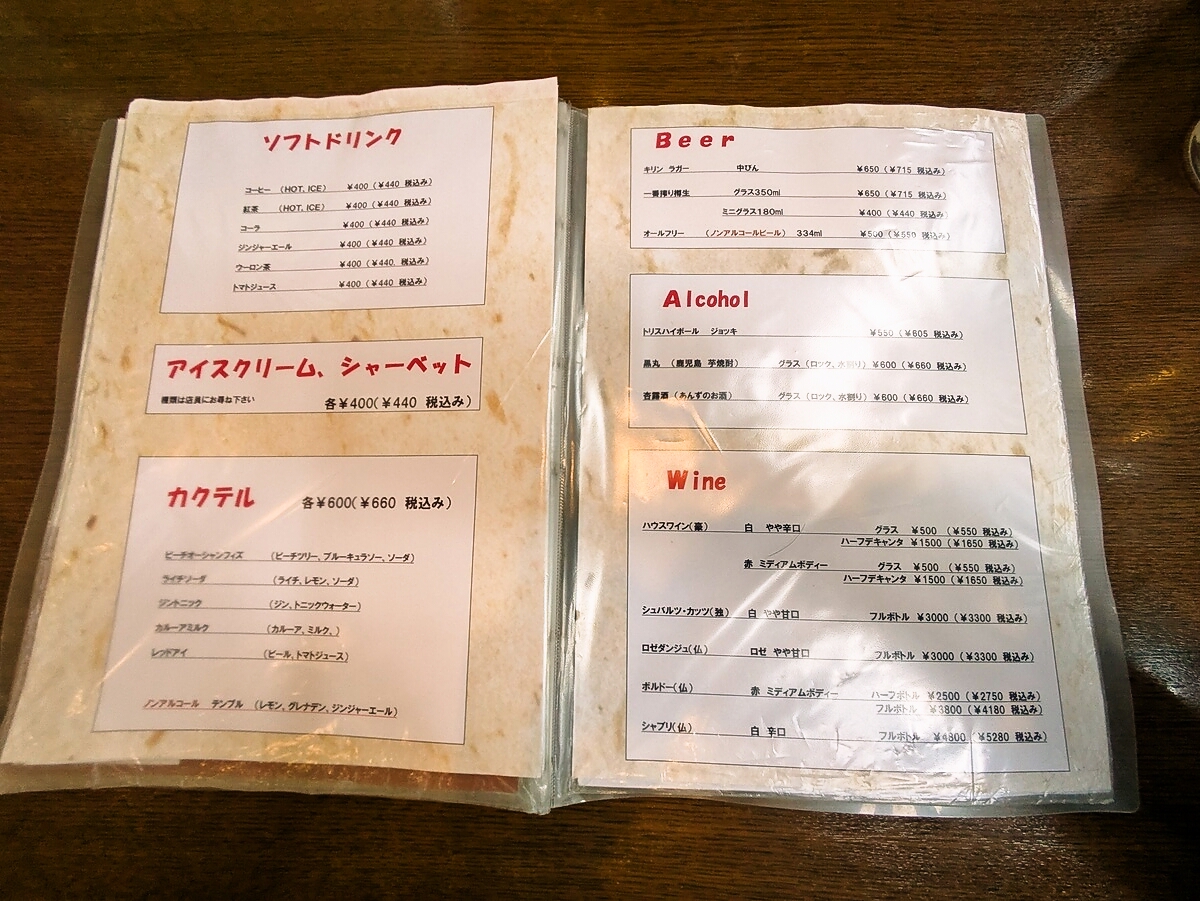 ソフトドリンク
コーヒー （HOT, ICE） ¥400（¥440 税込み）
紅茶 （HOT, ICE） ¥400（¥440 税込み）
コーラ ¥400（¥440 税込み）
ジンジャーエール ¥400（¥440 税込み）
ウーロン茶 ¥400（¥440. 税込み）
トマトジュース ¥400（¥440 税込み）
アイスクリーム、シャーベット
種類は店員にお尋ね下さい 各¥400（¥440 税込み）
カクテル 各¥600（¥660 税込み）
ピーチオーシャンフィズ （ピーチツリー、ブルーキュラソー、ソーダ）
ライチソーダ （ライチ、レモン、ソーダ）
ジントニック （ジン、トニックウォーター）
カルーアミルク （カルーア、ミルク、）
レッドアイ （ビール、トマトジュース）
ノンアルコール テンプル （レモン、グレナデン、ジンジャーエール）
Beer
キリン ラガー 中びん ¥650（¥715 税込み）
一番搾り樽生 グラス350ml ¥650（¥715 税込み）
ミニグラス180ml ¥400（¥440 税込み）
オールフリー （ノンアルコールビール） 334ml ¥500（¥550 税込み）
Alcohol
トリスハイボール ジョッキ ¥550（¥605 税込み）
黒丸 （鹿児島 芋焼酎） グラス（ロック、水割り）¥600（¥660 税込み）
杏露酒（あんずのお酒） グラス（ロック、水割り）¥600（¥660 税込み）
Wine
ハウスワイン（豪） 白 やや辛口 グラス ¥500（¥550 税込み）
ハーフデキャンタ ¥1500（¥1650 税込み）
赤 ミディアムボディー グラス ¥500（¥550 税込み）
ハーフデキャンタ ¥1500（¥1650 税込み）
シュバルツ・カッツ（独） 白 やや甘口 フルボトル ¥3000（¥3300 税込み）
ロゼダンジュ（仏） ロゼ やや甘口 フルボトル ¥3000（¥3300 税込み）
ボルドー（仏） 赤 ミディアムボディー ハーフボトル ¥2500（¥2750 税込み）
フルボトル ¥3800（¥4180 税込み）
シャブリ（仏） 白 辛口 フルボトル ¥4800（¥5280 税込み）